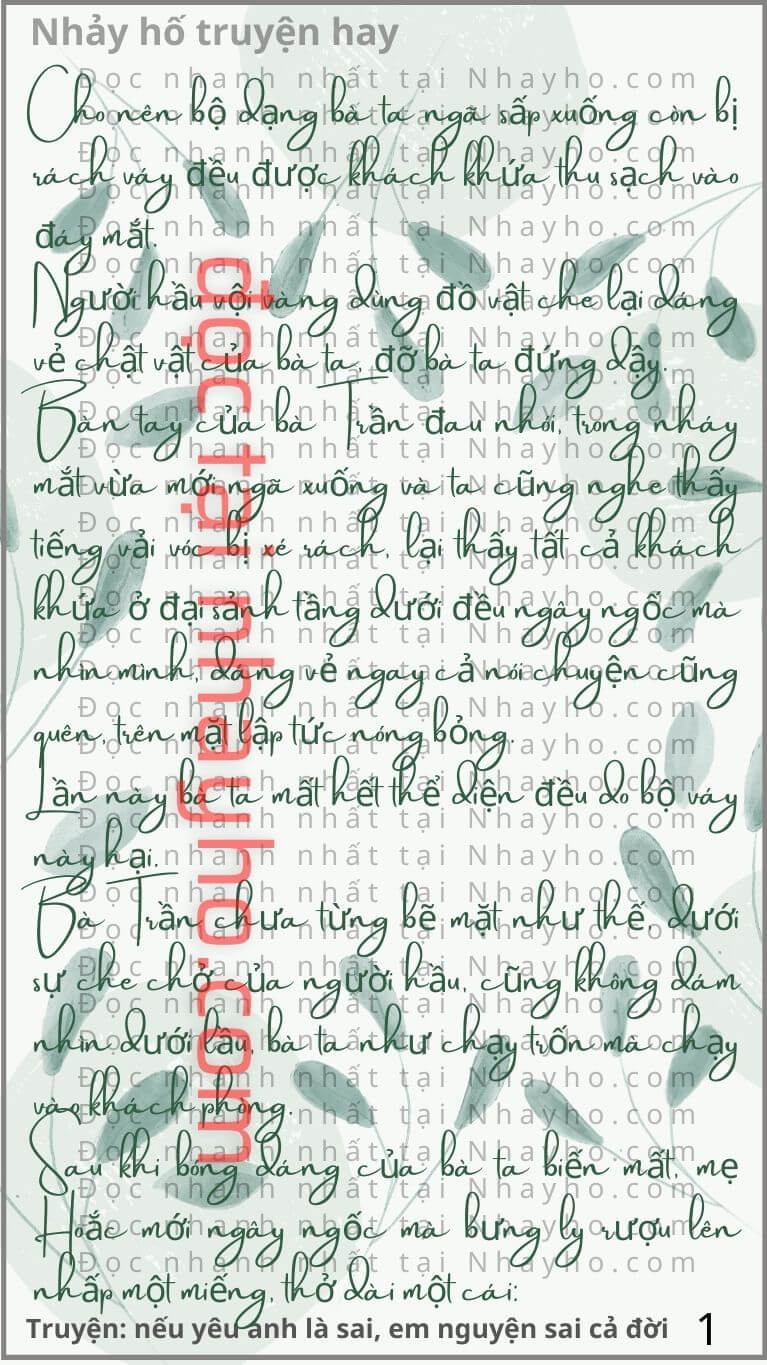 Nhảy hố truyện hay
Cho nên bộ dạng bà ta ngã sấp xuống còn bị
rách váy đều được khách khứa thu sạch vào
đáy mắt.
Người hầu vội vàng dùng đồ vật che lại dáng
vẻ chật vật của bà ta, đỡ bà ta đứng dậy.
Bàn tay của bà Trần đau nhói, trong nháy
mắt vừa mới ngã xuống và ta cũng nghe thấy
tiếng vải vóc bị xé rách, lại thấy tất cả khách
khứa ở đại sảnh tầng dưới đều ngây ngốc mà
nhìn mình, dáng vẻ ngay cả nói chuyện cũng
quên, trên mặt lập tức nóng bỏng.
Lần này bà ta mất hết thể diện đều do bộ váy
này hại.
Bà Trần chưa từng bẽ mặt như thế, dưới
sự che chở của người hầu, cũng không dám
nhìn dưới lầu, bà ta như chạy trốn mà chạy
vào khách phòng.
Sau khi bóng dáng của bà ta biến mất, mẹ
Hoắc mới ngây ngốc mà bưng ly rượu lên
nhấp một miếng, thở dài một cái:
Truyện: nếu yêu anh là sai, em nguyện sai cả đời 1
đọc tại nhayho.com
Đọc nhanh nhất tại Nhayho.com